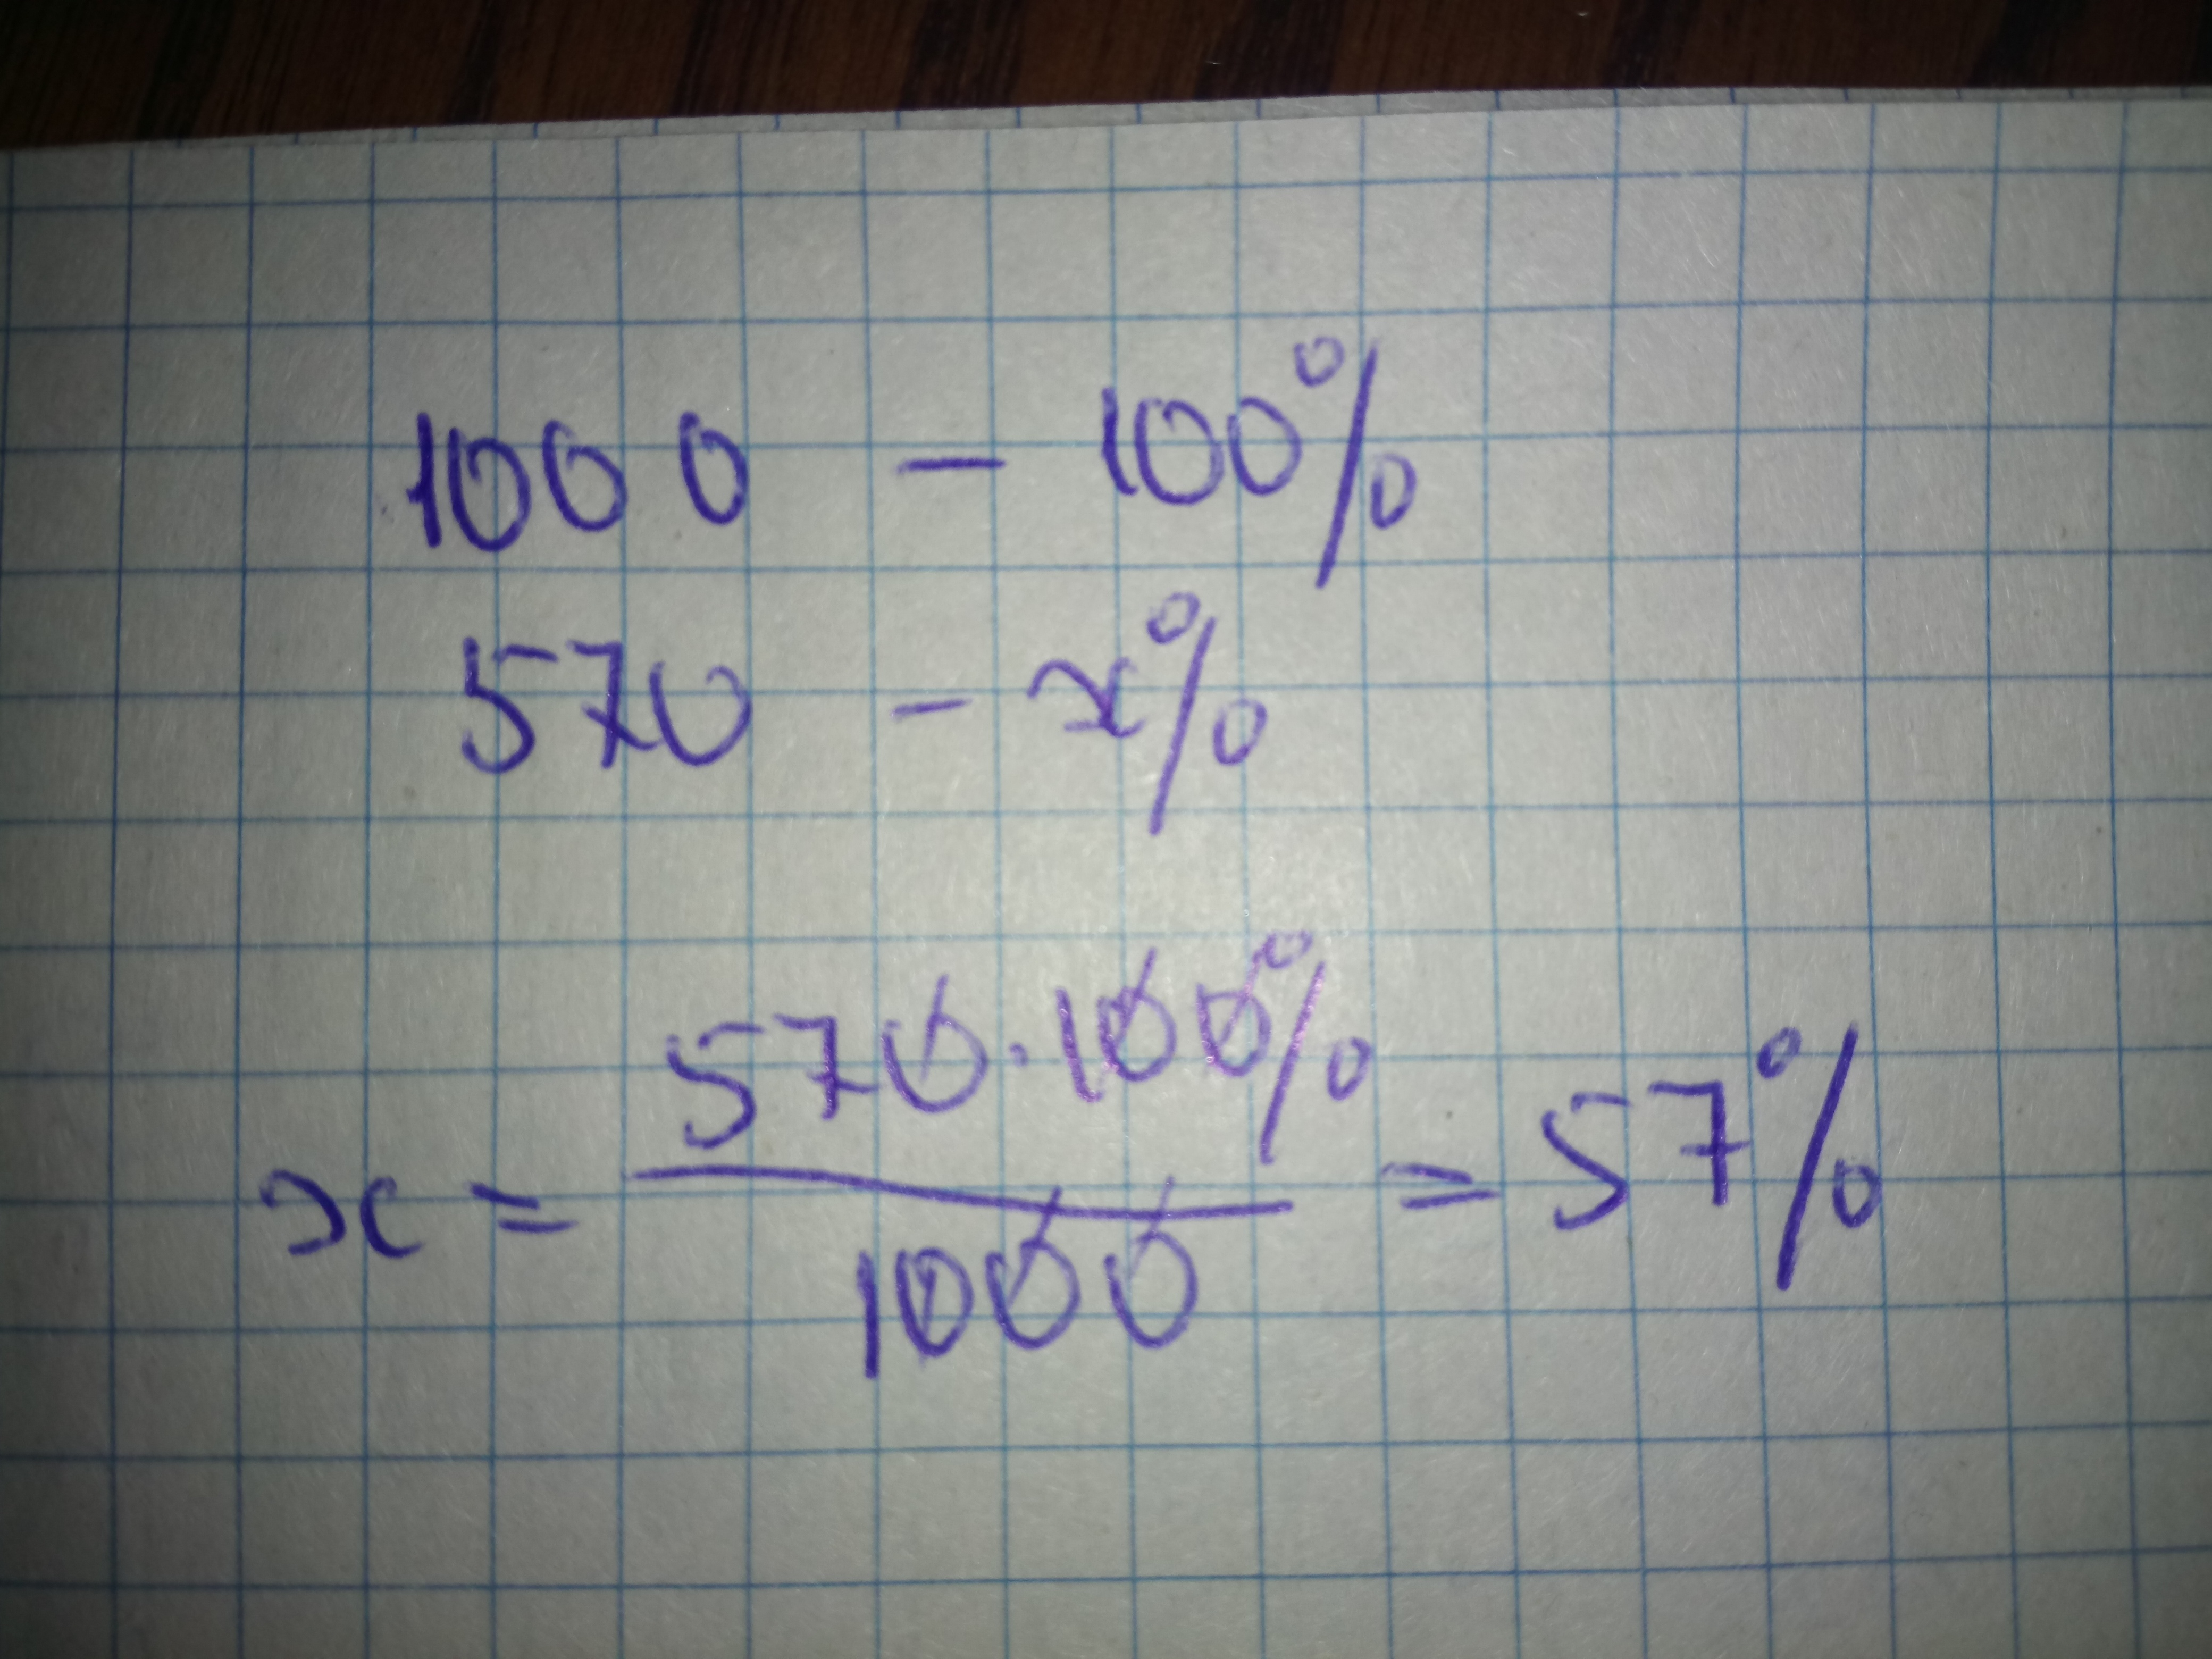 1000 - 100%
570 - x%
x = 570·100% / 1000 = 57%